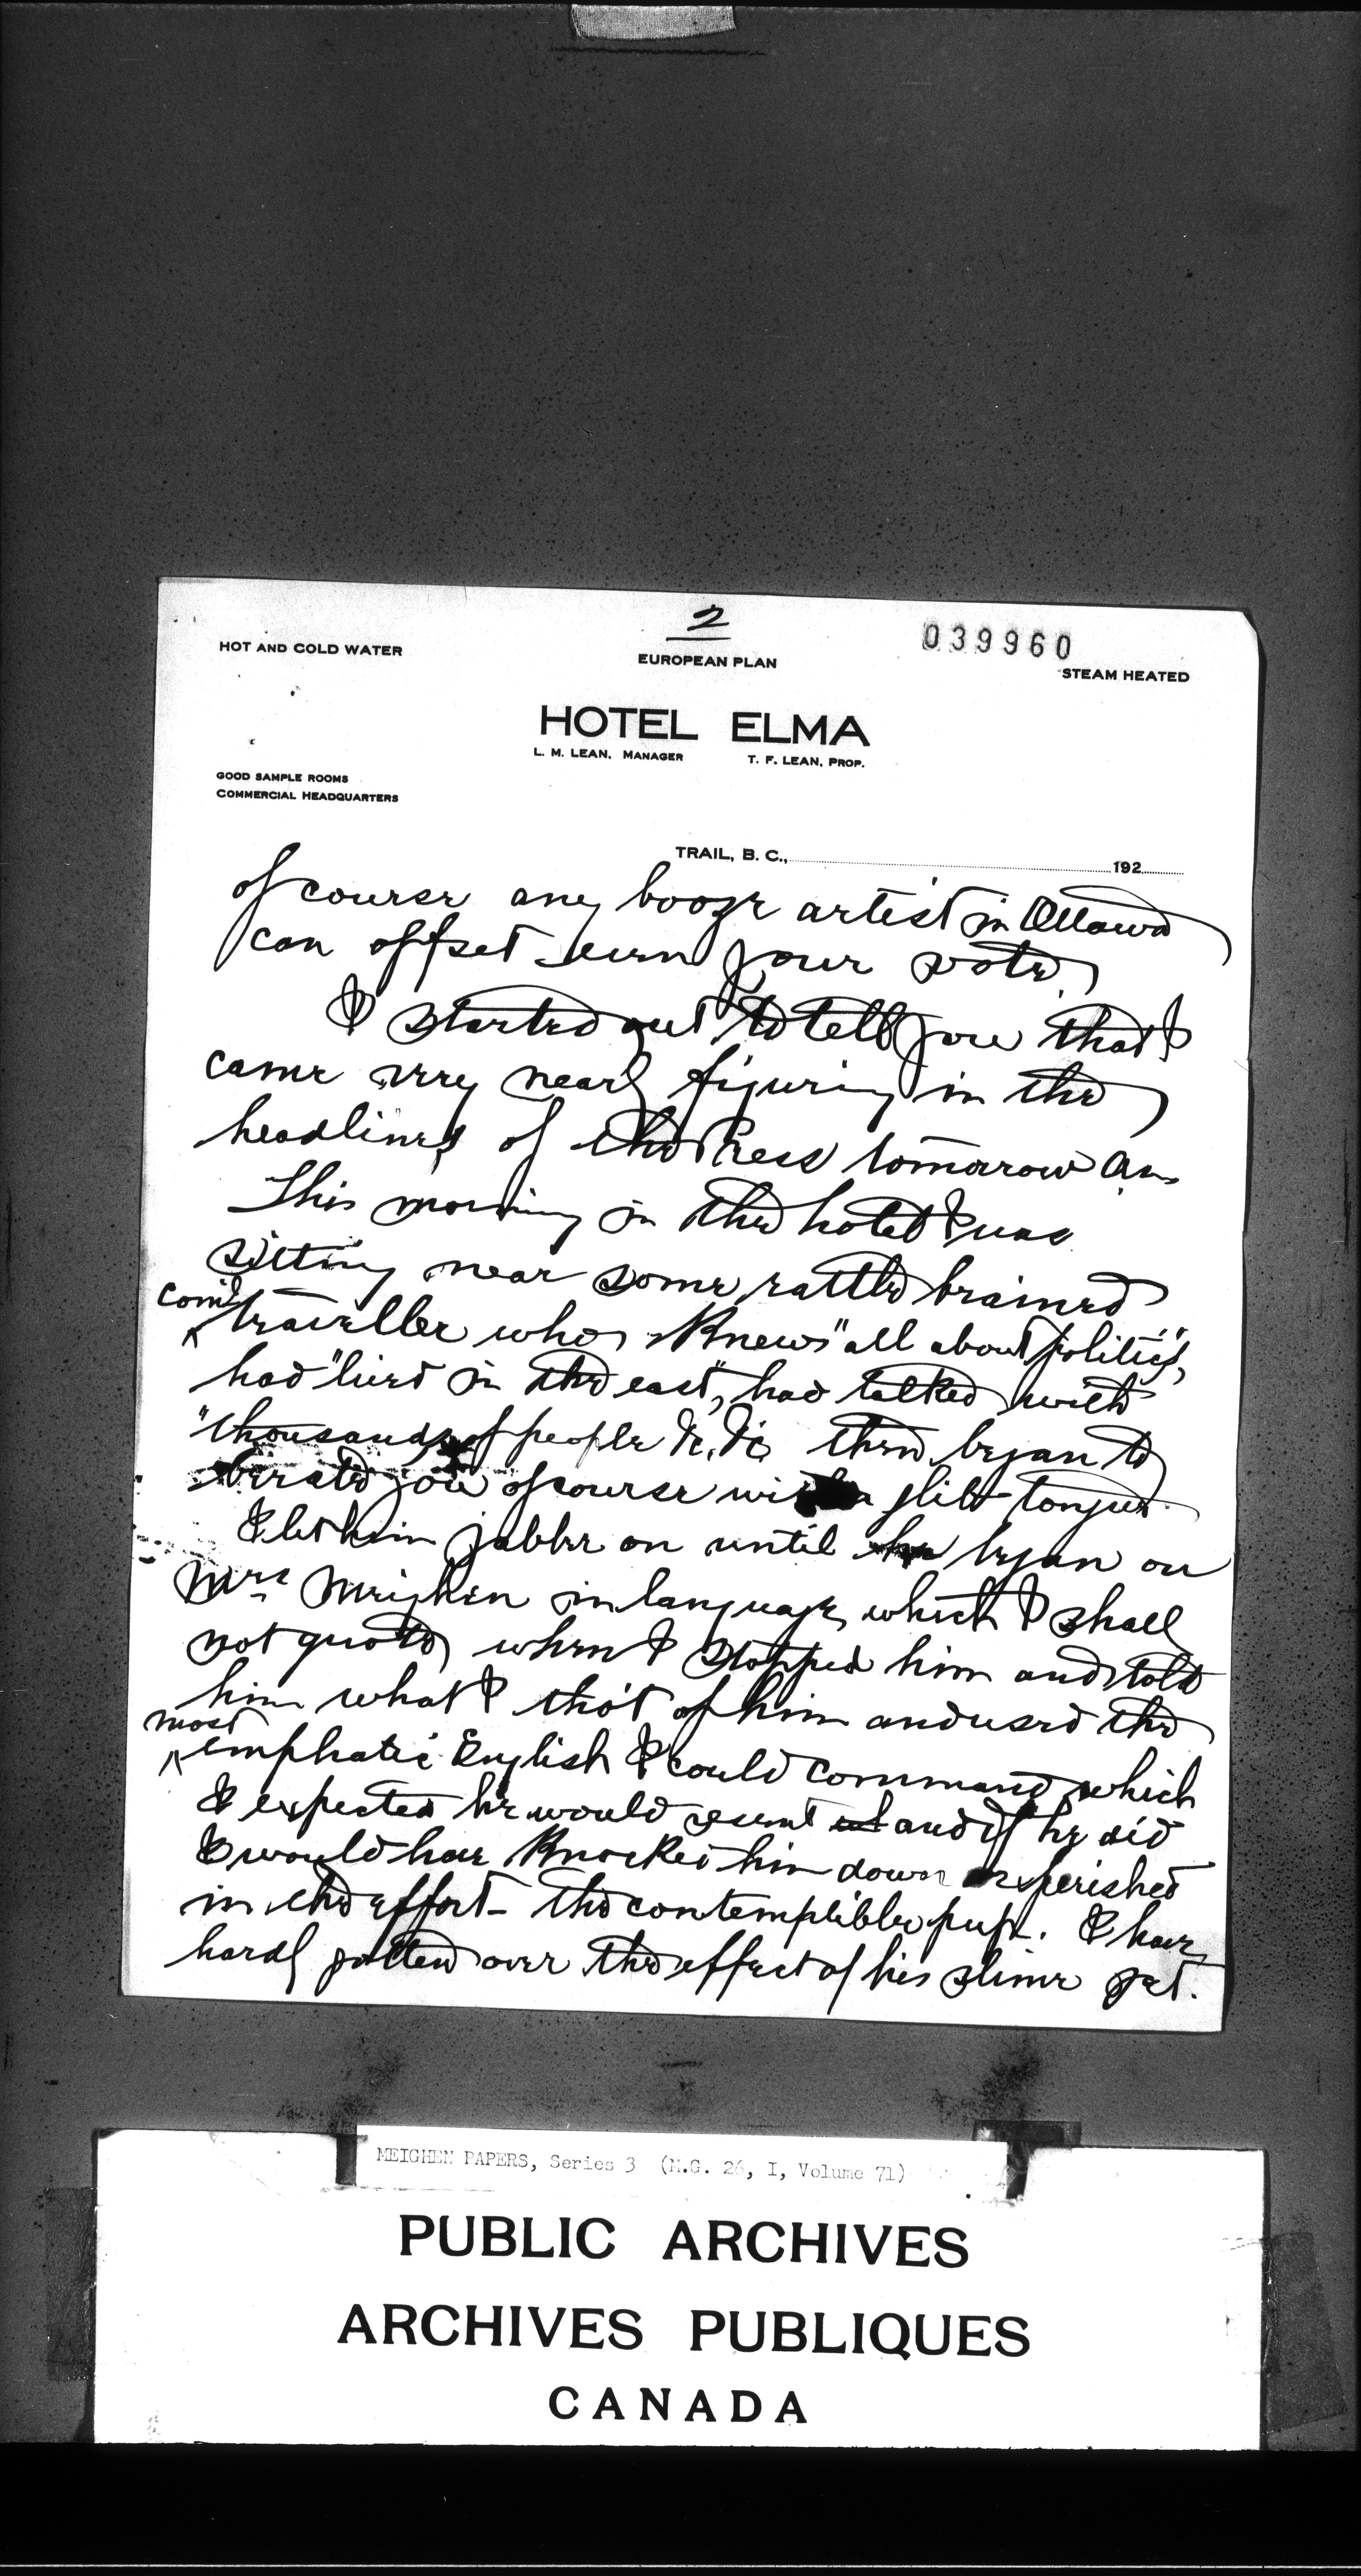 2
039960
HOT AND COLD WATER
EUROPEAN PLAN
STEAM HEATED
HOTEL ELMA
L. M. LEAN, MANAGER T. F. LEAN, PROP.
GOOD SAMPLE ROOMS
COMMERCIAL HEADQUARTERS
TRAIL, B. C., 192
of course any booze artist in Ottawa
can offset even your vote.
I started out to tell you that I
came very nearly figuring in the
headlines of the Press tomorrow am
This morning in the hotel I was
sitting near some rattle brained
com'l
traveller who "Knew" all about politics",
had "lived in the east", had talked with
"thousands of people &c, &c then began to
berate you of course with a glib tongue.
I let him jabber on until he began on
Mrs Meighen in language which I shall
not quote, when I stopped him and told
him what I tho't of him and used the
most
emphatic English I could command which
I expected he would resent and if he did
I would have Knocked him down or perished
in the effort - the contemptible pup. I have
hardly gotten over the effect of his slime yet.
MEIGHEN PAPERS, Series 3 (M.G. 26, I, Volume 71)
PUBLIC ARCHIVES
ARCHIVES PUBLIQUES
CANADA